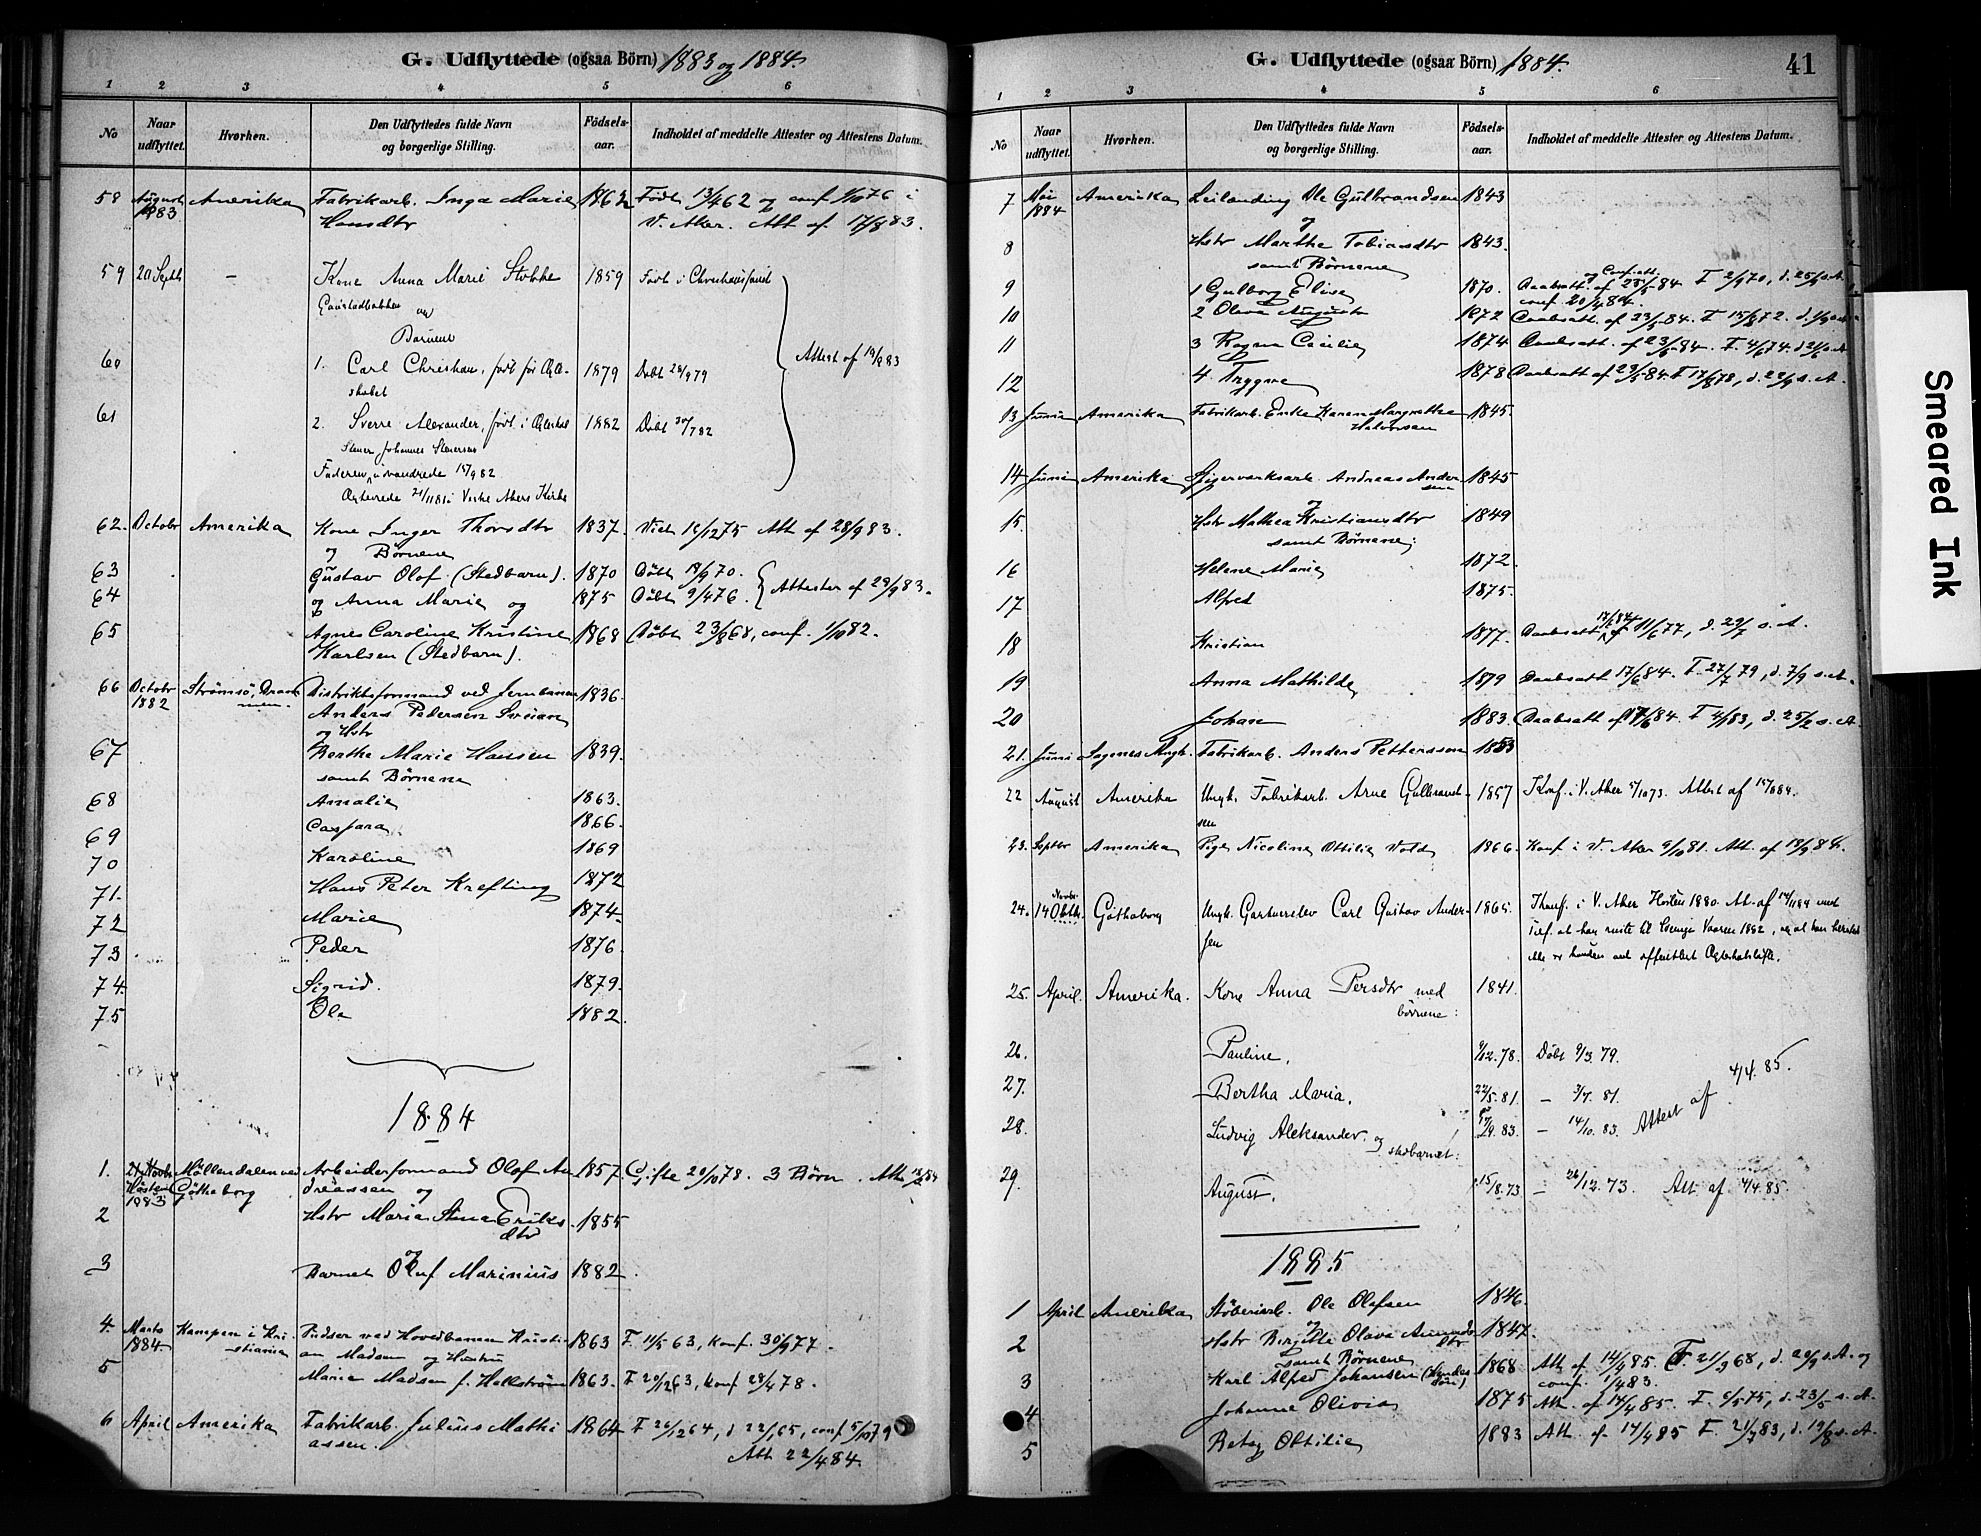 G. Udflyttede (ogsaa Börn) 1883 og 1884.
1 2 3 4 5 6
No
Naar udflyttet.
Hvorhen.
Den Udflyttedes fulde Navn og borgerlige Stilling.
Födsels-aar.
Indholdet af meddelte Attester og Attestens Datum.
58 August 1883 Amerika Fabrikarb. Inga Marie 1862 Født 13/4 62 og conf 1/10 76 i
Hansdtr V. Aker. Att af 17/8 83.
59 20 Septb – Kone Anna Marie Stokke 1859 Født i Christianssand
Gaustadbakken
og
Børnene
60 1. Carl Christian, født før Ægte- 1879 Døbt 28/9 79 Attest af 19/9 83
skabet
61 2. Sverre Alexander, født i Ægteskab 1882 Døbt 30/7 82
Faderen, udvandrede 15/9 82
Ægteviede 21/11 81 i Vestre Akers Kirke
62. Octobr Amerika Kone Inger Thorsdtr 1837. Viet 16/12 75 Att af 28/9 83.
og Børnene
63 Gustav Olof (Stedbarn). 1870 Døbt 18/9 70. Attester af 29/9 83.
64 og Anna Marie og 1875 Døbt 9/4 76.
65 Agnes Caroline Kristine 1868 Døbt 23/8 68, conf. 1/10 82.
Karlsen (Stedbarn).
66 Octobr 1882 Strømsö, Drammen. Distriktsformand ved Jernbanen 1836.
Anders Pedersen Sveian
og Hstr
67 Berthe Marie Hansen 1839.
samt Börnene
68 Amalie 1863.
69 Caspara 1866.
70 Karoline 1869
71. Hans Peter Krefting 1872
72 Marie 1874
73 Peder 1876.
74. Sigrid. 1879.
75 Ole 1882.
1884
1. Høsten 1883 Möllendalen ved Göthaborg Arbeiderformand Olof An 1857. Gifte 20/10 78. 3 Børn. Att
dreassen og
2 Hstr Maria Stina Eriks 1855
dtr
og
3 Barnet Oluf Marinius 1882.
4. Marts 1884 Kampen i Kristiania Pudser ved Hovedbanen Kristi 1863 F. 11/5 63, Konf. 30/9 77.
an Madsen og Hustru
5 Marie Madsen f. Hellström 1863. F 20/12 63, Konf 28/4 78.
6 April Amerika Fabrikarb. Julius Mathi 1864 F 26/12 64, d 22/1 65, conf 5/10 79
assen. Att 22/4 84.
G. Udflyttede (ogsaa Börn) 1884. 41
1 2 3 4 5 6
No
Naar udflyttet.
Hvorhen.
Den Udflyttedes fulde Navn og borgerlige Stilling.
Födsels-aar.
Indholdet af meddelte Attester og Attestens Datum.
7 Mai 1884 Amerika Leilending Ole Gulbrandsen 1843
og
8 Hstr Marthe Tobiasdtr 1843.
samt Börnene
9 1 Gulborg Elise 1870. Daabsatt. og Conf. att. af 23/5 84 F 2/9 70, d. 25/9 s. A.
conf. 20/4 84.
10 2 Olava Augusta 1872 Daabsatt. af 23/5 84. F 15/8 72.
11 3 Ragna Cecilie 1874 Daabsatt. af 23/5 84. F. 4/6 74.
12 4. Trygve 1878 Daabsatt af 23/5 84. F 17/8 78, d. 22/9 s. A.
13 Juni Amerika Fabrikarb. Enke Karen Margrethe 1845.
Halvorsen
14 Juni Amerika Spigerverksarb. Andreas Ander 1845
sen
og
15. Hstr Mathea Kristiansdtr 1849
samt Börnene:
16 Helene Marie 1872.
17 Alfred 1875.
18 Kristian 1877. Daabsatt 17/6 84 F 11/6 77, d. 22/7 s. A.
19 Anna Mathilde 1879 Daabsatt 17/6 84. F. 27/7 79, d. 7/9 s. A.
20 Johan 1883. Daabsatt af 17/6 84. F 4/1 83, d. 25/2 s. A.
21. Juni Sagnes Angh. Fabrikarb. Anders Petterssen 1853
22 August Amerika Ungk. Fabrikarb. Arne Gulbrand- 1857 Konf. i V. Aker 5/10 73. Attest af 15/8 84.
sen
23. Septbr Amerika Pige Nicoline Ottilie Vold 1866. Konf i V. Aker 9/10 81. Att. af 18/9 84.
24. 14 Novbr Göthaborg Ungk. Gartnerelev Carl Gustav Ander- 1865. Konf. i V. Aker Hösten 1880. At. af 14/11 84 med
sen Tilf. at han reiste til Sverige Vaaren 1882,
25. April. Amerika. Kone Anna Persdtr med 1841.
börnene:
26. Pauline. 9/12. 78. Döbt 9/3. 79.
27. Bertha Maria. 22/5. 81. – 3/7. 81. Attest af 4/4. 85.
28. Ludvig Aleksander. og 9. 83. – 14/10. 83.
stedbarnet:
29. August. 15/8. 73 – 26/12. 73. Att af 4/4 85.
1885
1 April Amerika Støberiarb. Ole Olafsen 1846
og
2 Hstr Birgitte Olava Amunds 1847.
dtr
samt Börnene
3 Karl Alfred Johansen (Hendes sön) 1868 Att. af 14/4 85. F. 21/9 68, d. 20/9 s. A. og
conf. 1/4 83.
4 Johanne Olivia 1875 Att. af 14/4 85. F. 5/1 75, d. 23/5 s. A.
5 Betzy Ottilie 1883 Att. af 14/4 85 F. 21/7 83, d. 19/8 s. A.
Smeared Ink